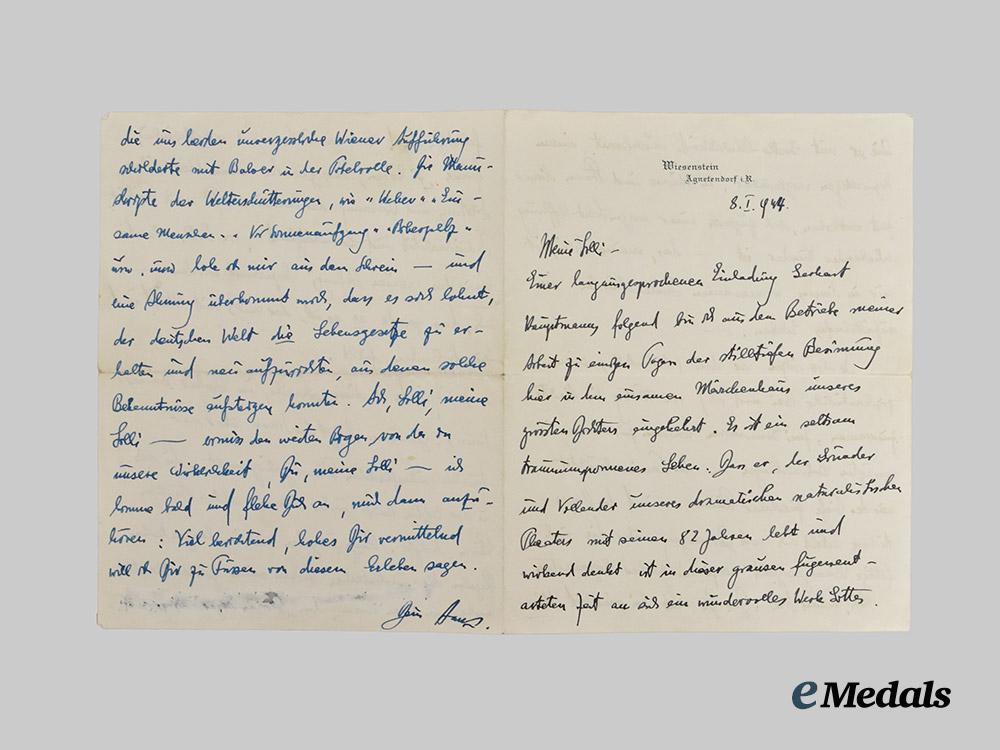 die uns beiden unvergessliche Wiener Aufführung
schilderte mit Balser in der Titelrolle. Die Manu-
skripte der Welterschütterungen, wie "Weber" "Ein-
same Menschen" "Vor Sonnenaufgang" "Biberpelz"
usw. usw. hole ich mir aus dem Schrein — und
eine Ahnung überkommt mich, dass es sich lohnt,
der deutschen Welt die Lebensgesetze zu er-
halten und neu aufzurichten, aus denen solche
Bekenntnisse aufsteigen konnten. Ach, Lolli, meine
Lolli — ermiss den weiten Bogen, von der in
unsere Wirklichkeit, Du, meine Lolli — ich
komme bald und flehe Dich an, mich dann anzu-
hören: Viel berichtend, hohes Dir vermittelnd
will ich Dir zu Füssen von diesem Erleben sagen.
Dein
Wiesenstein
Agnetendorf i.R.
8. I. 944.
Meine Lolli —
Einer langausgesprochenen Einladung Gerhart
Hauptmanns folgend bin ich aus dem Betriebe meiner
Arbeit zu einigen Tagen der stilltiefen Besinnung
hier in dem einsamen Märchenhaus unseres
grössten Dichters eingekehrt. Es ist ein seltsam
traumumsponnenes Leben: Dass er, der Gründer
und Vollender unseres dramatischen naturalistischen
Theaters mit seinen 82 Jahren lebt und
wirkend denkt ist in dieser grausen fugenent-
arteten Zeit an sich ein wundervolles Werk Gottes.
eMedals